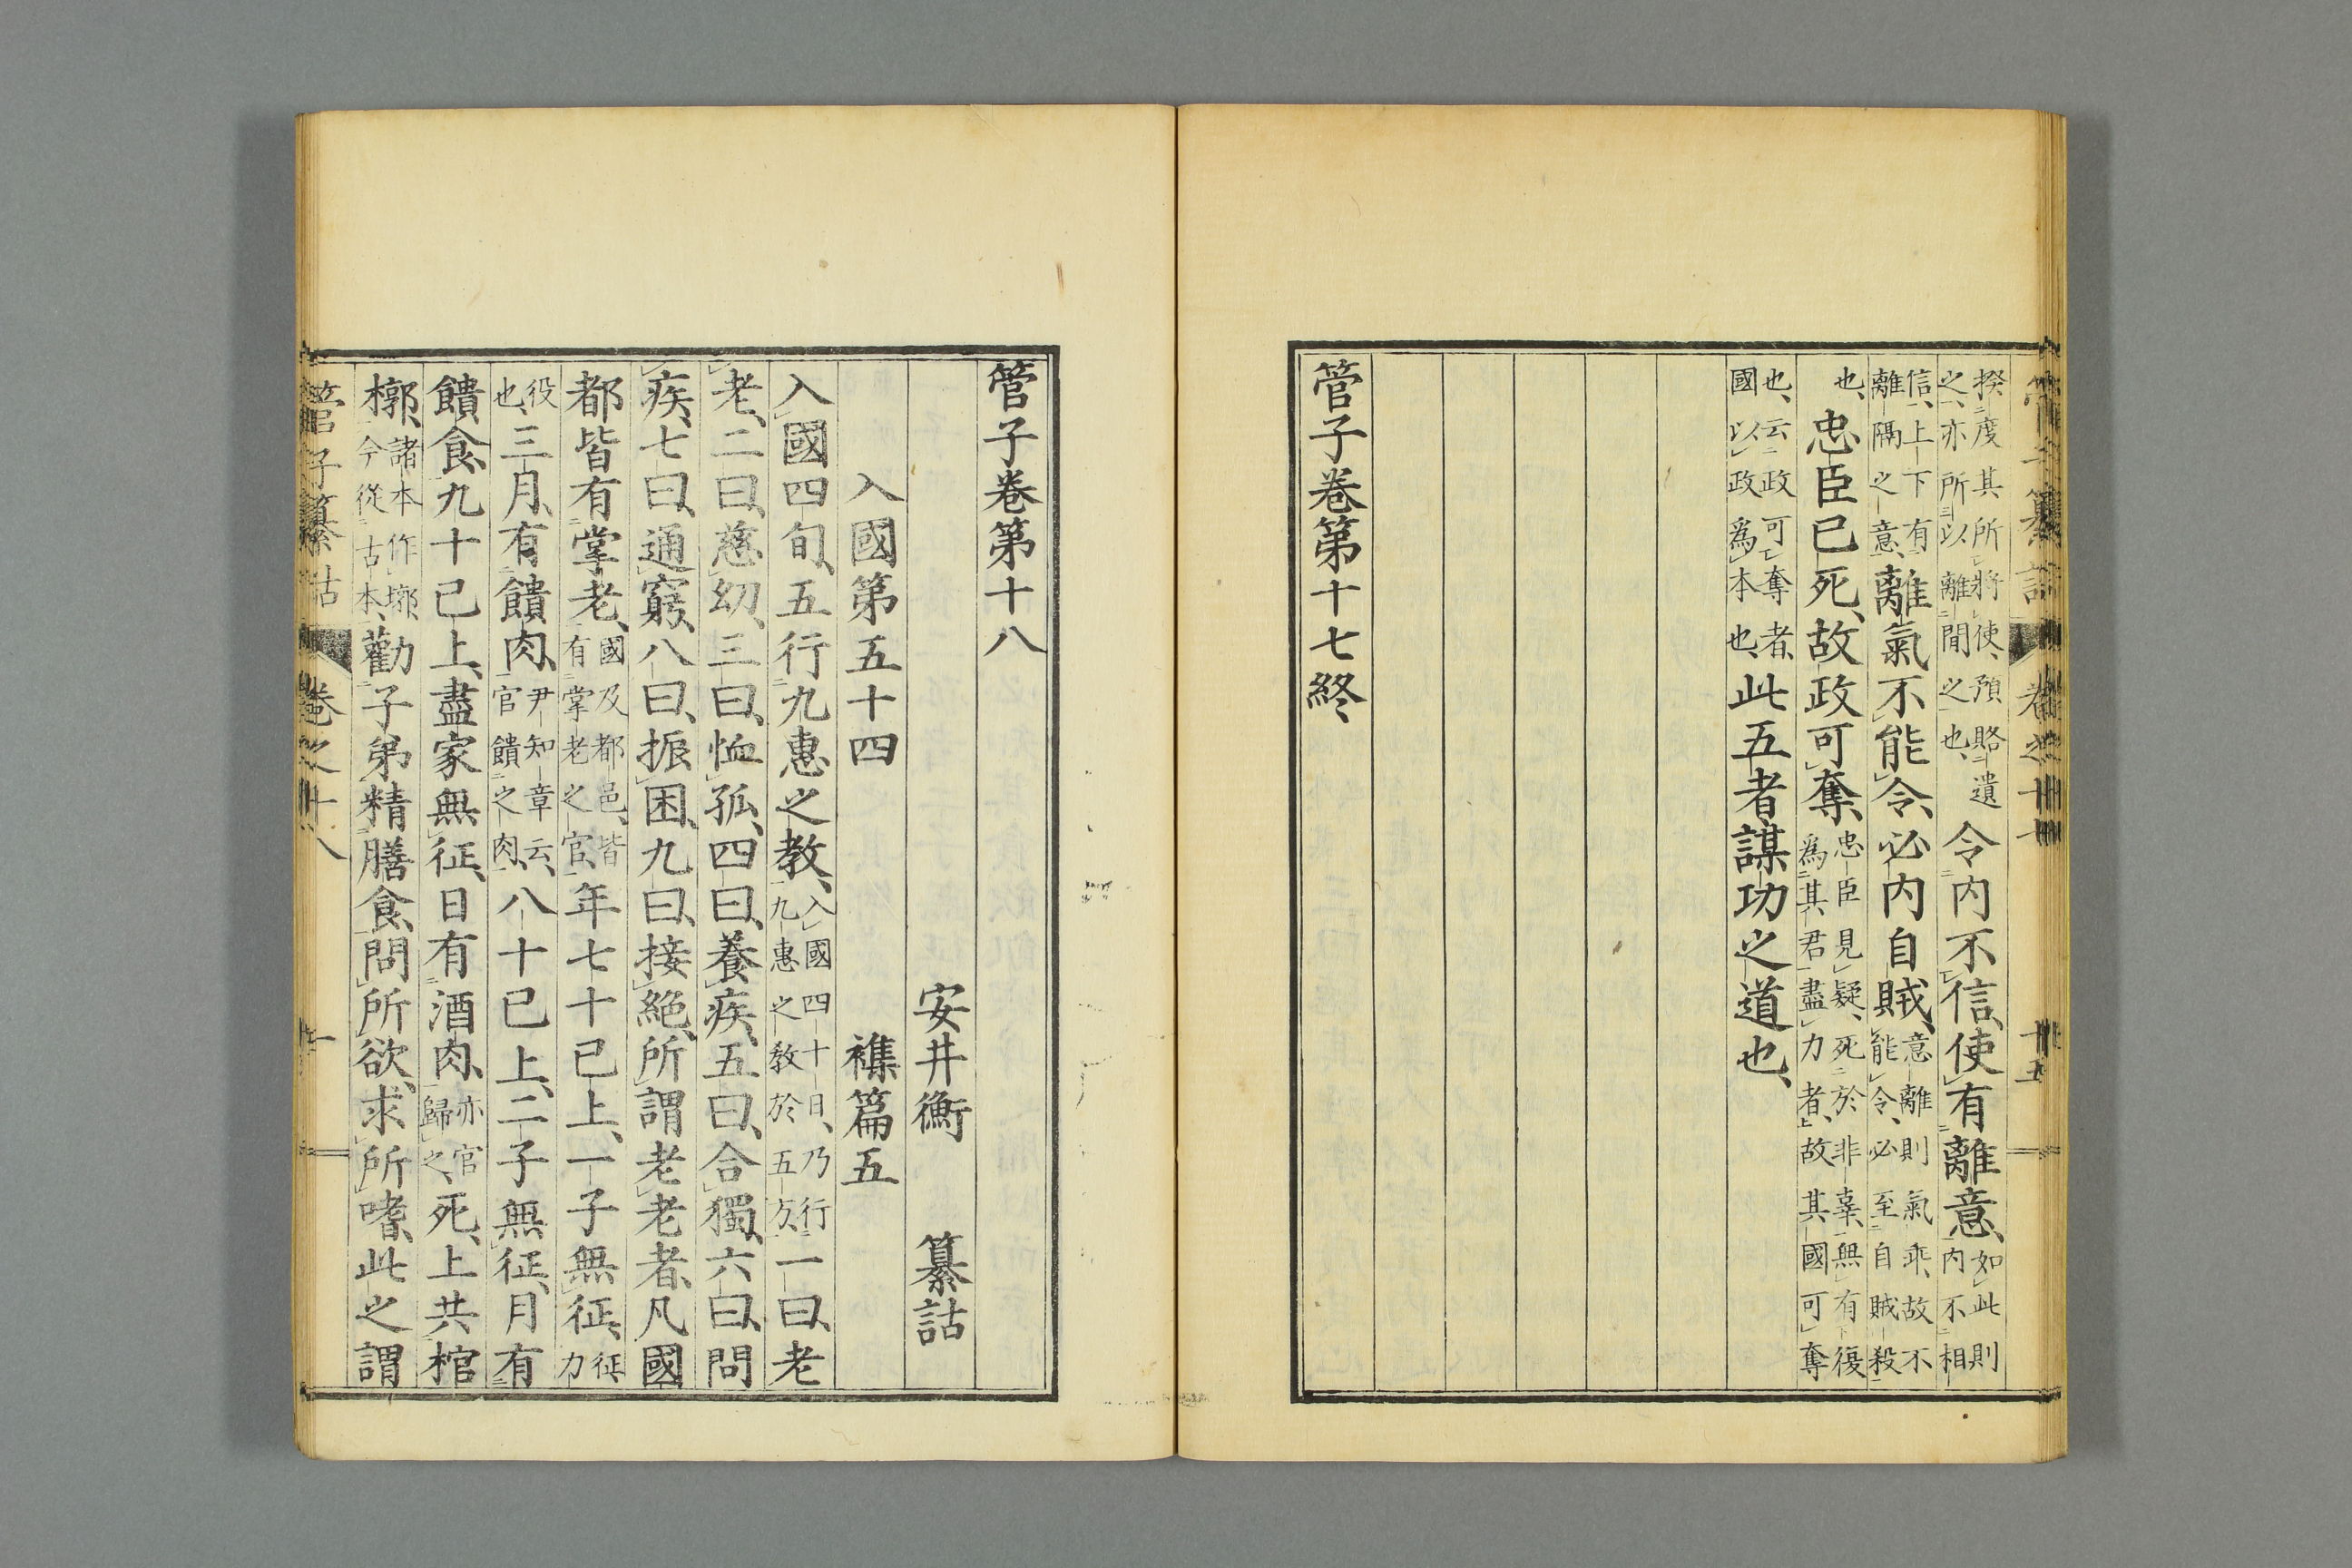 管子纂詁 卷之十七 十五
揆度其所將使、預賂遺
之、亦所以離間之也、令内不信、使有離意、如此則
内不相
信、上下有
離隔之意、離氣不能令、必内自賊、意離則氣乖、故不
能令、必至自賊殺
也、忠臣已死、故政可奪、忠臣見疑、死於非辜、無有復
爲其君盡力者、故其國可奪
也、云政可奪者、
國以政爲本也、此五者謀功之道也、
管子卷第十七終
管子卷第十八
安井衡 纂詁
入國第五十四 襍篇五
入國四旬、五行九惠之教、入國四十日、乃行
九惠之教於五方、一曰、老
老、二曰、慈幼、三曰、恤孤、四曰、養疾、五曰、合獨、六曰、問
疾、七曰、通窮、八曰、振困、九曰、接絕、所謂老老者、凡國
都皆有掌老、國及都邑、皆
有掌老之官、年七十已上、一子無征、征
力
役
也、三月、有饋肉、尹知章云、
官饋之肉、八十已上、二子無征、月有
饋食、九十已上、盡家無征、日有酒肉、亦官
歸之、死、上共棺
槨、諸本作墎、
今從古本、勸子弟精膳食、問所欲、求所嗜、此之謂
管子纂詁 卷之十八 一